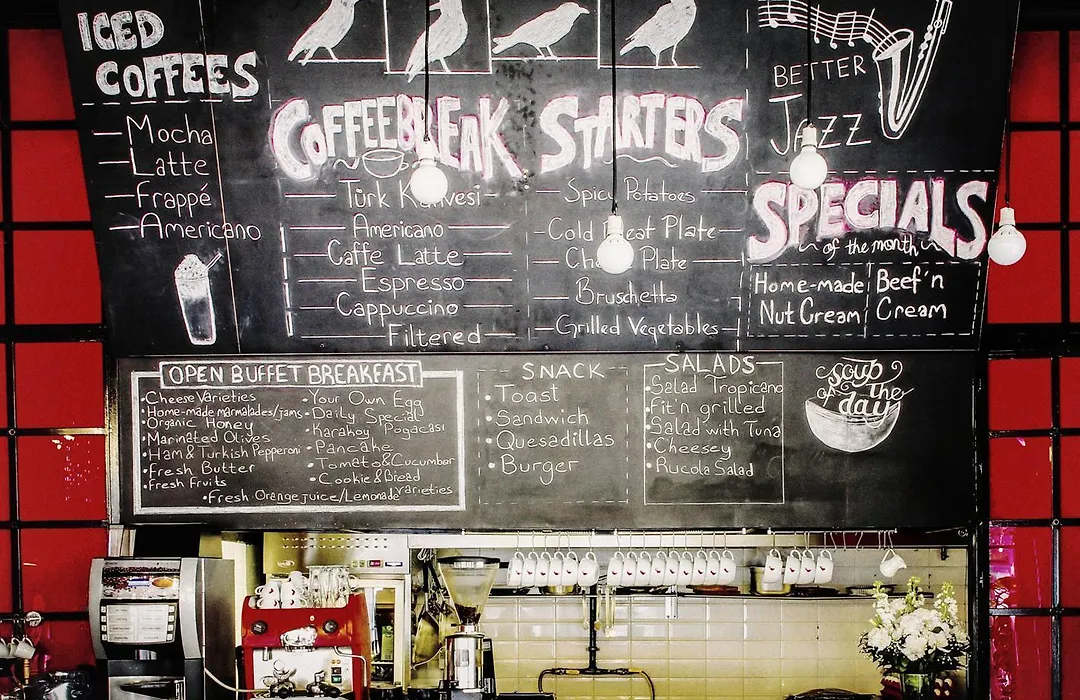 ICED
COFFEES
Mocha
Latte
Frappé
Americano
COFFEEBREAK
Türk Kahvesi
Americano
Caffe Latte
Espresso
Cappuccino
Filtered
STARTERS
Spicy Potatoes
Cold Meat Plate
Plate
Bruschetta
Grilled Vegetables
BETTER
JAZZ
SPECIALS
of the month
Home-made
Nut Cream
Beef'n
Cream
OPEN BUFFET BREAKFAST
Cheese Varieties
Home-made marmalades/jams
Organic Honey
Marinated Olives
Ham & Turkish Pepperoni
Fresh Butter
Fresh Fruits
Your Own Egg
Daily Special
Karaköy Pogacası
Pancake
Tomato & Cucumber
Cookie & Bread
varieties
Fresh Orange juice/Lemonade
SNACK
Toast
Sandwich
Quesadillas
Burger
SALADS
Salad Tropicano
Fit'n grilled
Salad with Tuna
Cheesey
Rucola Salad
soup
of The
day